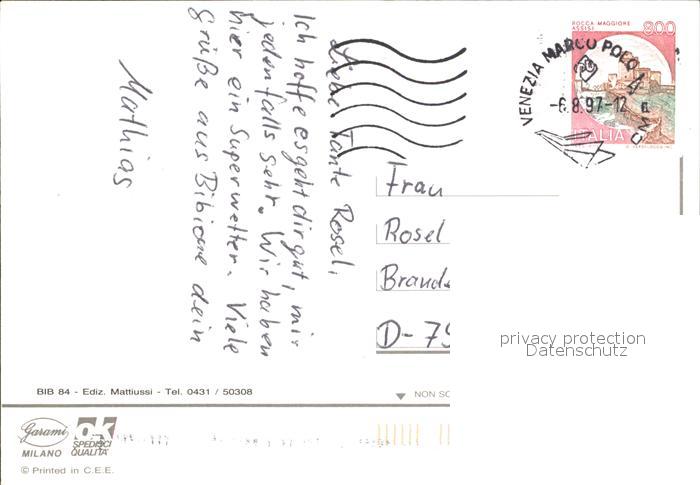 Liebe Tante Rosel,
Ich hoffe es geht dir gut, mir
jedenfalls sehr. Wir haben
hier ein Superwetter. Viele
Grüße aus Bibione dein
Mathias
ROCCA MAGGIORE
ASSISI
800
ITALIA
VENEZIA MARCO POLO
-6.8.97-12
Frau
Rosel
Brand
D-79
privacy protection
Datenschutz
BIB 84 - Ediz. Mattiussi - Tel. 0431 / 50308
NON SC
Garami
MILANO
ok
SPEDISCI
QUALITA'
© Printed in C.E.E.